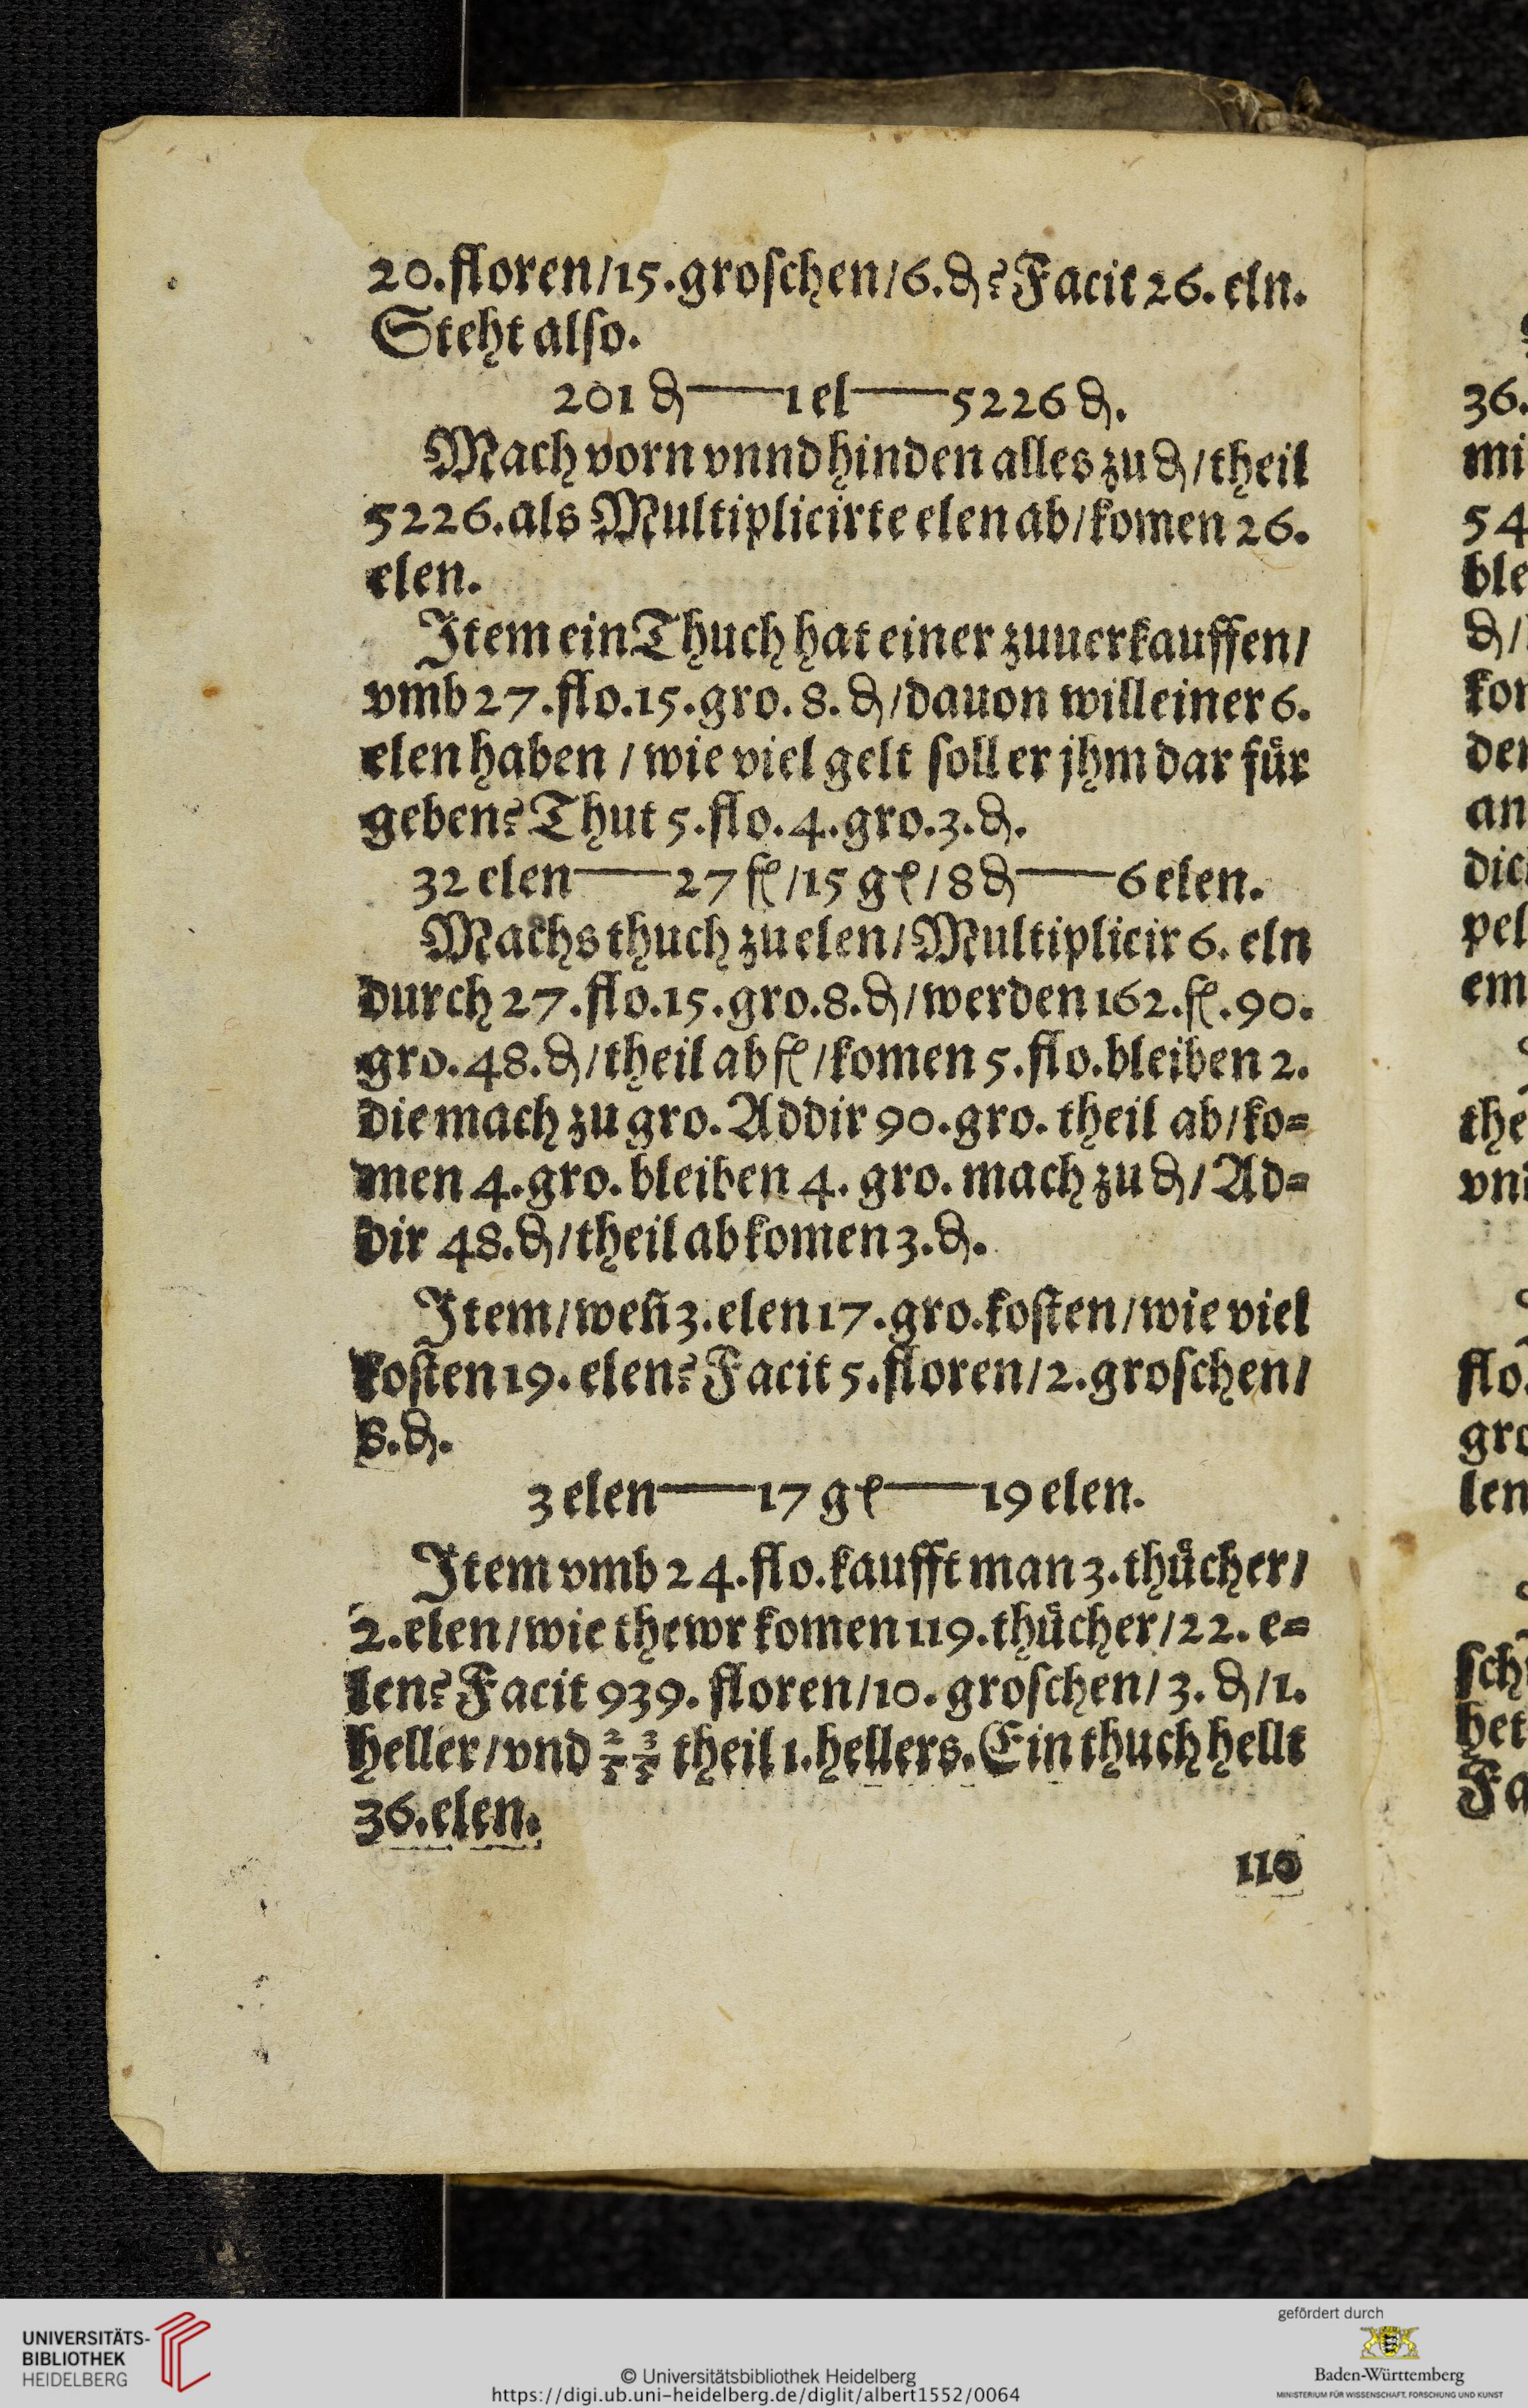 20. floren/15. groschen/6. ₰? Facit 26. eln.
Steht also.
201 ₰——1 el——5226 ₰.
Mach vorn vnnd hinden alles zu ₰/theil
5226. als Multiplicirte elen ab/komen 26.
elen.
Item ein Thuch hat einer zuuerkauffen/
vmb 27. flo. 15. gro. 8. ₰/dauon will einer 6.
elen haben / wie viel gelt soll er jhm dar für
geben? Thut 5. flo. 4. gro. 3. ₰.
32 elen——27 fl/15 gl/8 ₰——6 elen.
Machs thuch zu elen/Multiplicir 6. eln
durch 27. flo. 15. gro. 8. ₰/werden 162. fl. 90.
gro. 48. ₰/theil ab fl/komen 5. flo. bleiben 2.
die mach zu gro. Addir 90. gro. theil ab/ko=
men 4. gro. bleiben 4. gro. mach zu ₰/Ad=
dir 48. ₰/theil ab komen 3. ₰.
Item/weñ 3. elen 17. gro. kosten/wie viel
kosten 19. elen? Facit 5. floren/2. groschen/
8. ₰.
3 elen——17 gl——19 elen.
Item vmb 24. flo. kaufft man 3. thücher/
2. elen/wie thewr komen 119. thücher/22. e=
len? Facit 939. floren/10. groschen/3. ₰/1.
heller/vnd 2/5 3/5 theil 1. hellers. Ein thuch hellt
36. elen.
110
36.
mi
54
ble
₰/
kor
der
an
dic
pel
em
the
vni
flo.
gro
len
sch
het
Fa
UNIVERSITÄTS-
BIBLIOTHEK
HEIDELBERG
© Universitätsbibliothek Heidelberg
https://digi.ub.uni-heidelberg.de/diglit/albert1552/0064
gefördert durch
Baden-Württemberg
MINISTERIUM FÜR WISSENSCHAFT, FORSCHUNG UND KUNST